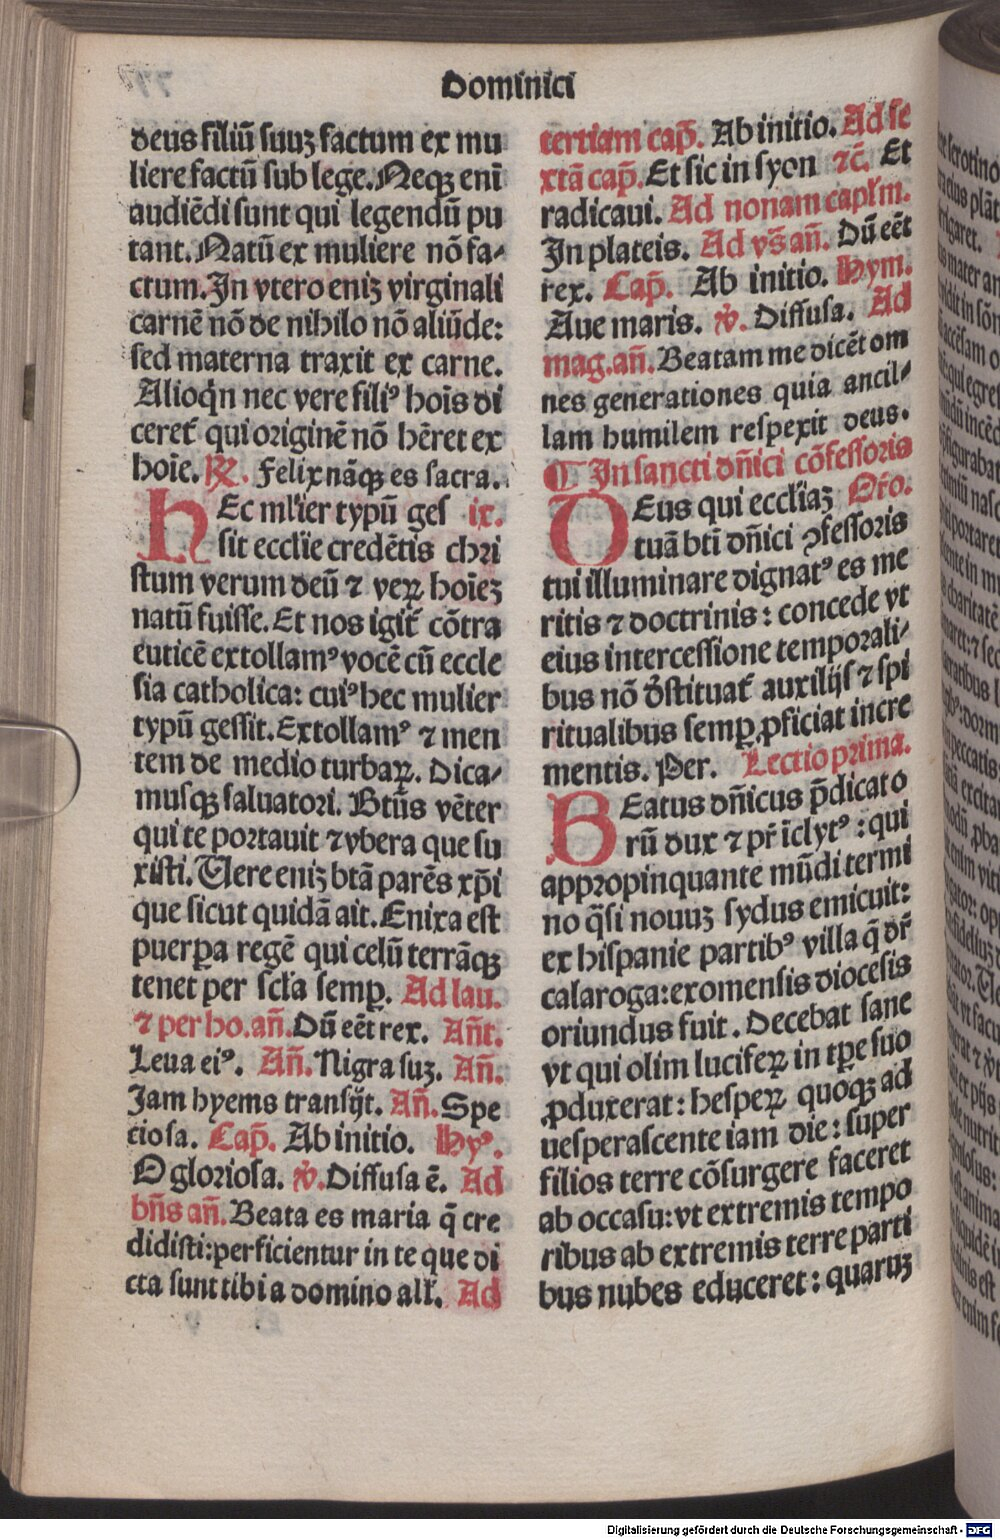 Dominici
deus filiū suuꝫ factum ex mu
liere factū sub lege. Neqꝫ eni
audiēdi sunt qui legendū pu
tant. Natū ex muliere nō fa⸗
ctum. In vtero eniꝫ virginali
carnē nō de nihilo nō aliūde:
sed materna traxit ex carne.
Alioq̇n nec vere filiꝰ hoīs di
ceret᷑ qui originē nō hēret ex
hoīe. ℟. Felix nāqꝫ es sacra.
HEc ml̕ier typū ges ix.
sit eccl̕ie credētis chri
stum verum deū ⁊ veꝝ hoīeꝫ
natū fuisse. Et nos igit᷑ cōtra
euticē extollamꝰ vocē cū eccle
sia catholica: cuiꝰ hec mulier
typū gessit. Extollamꝰ ⁊ men
tem de medio turbaꝝ. Dica⸗
musqꝫ saluatori. Btūs vēter
qui te portauit ⁊ vbera que su
xisti. Uere eniꝫ btā parēs xp̄i
que sicut quidā ait. Enixa est
puerꝑa regē qui celū terrāqꝫ
tenet per scl̕a semꝑ. Ad lau.
⁊ per ho. an̄. Dū eēt rex. An̄t.
Leua eiꝰ. An̄. Nigra suꝫ. An̄.
Jam hyems transijt. An̄. Spe
ciosa. Cap̄. Ab initio. Hyꝰ.
O gloriosa. ℣. Diffusa ē. Ad
bn̄s an̄. Beata es maria q̄ cre
didisti: perficientur in te que di
cta sunt tibi a domino all̕. Ad
tertiam cap̄. Ab initio. Ad se
xtā cap̄. Et sic in syon ⁊c̄. Et
radicaui. Ad nonam capl̕m.
In plateis. Ad vs̄ an̄. Dū eēt
rex. Cap̄. Ab initio. Hym.
Aue maris. ℣. Diffusa. Ad
mag. an̄. Beatam me dicēt om
nes generationes quia ancil⸗
lam humilem respexit deus.
¶ In sancti dn̄ici cōfessoris
DEus qui eccl̕iaꝫ Or̄o.
tuā bt̄i dn̄ici ꝯfessoris
tui illuminare dignatꝰ es me
ritis ⁊ doctrinis: concede vt
eius intercessione temporali⸗
bus nō d̕stituat᷑ auxilijs ⁊ spi
ritualibus semꝑ ꝓficiat incre
mentis. Per. Lectio prima.
BEatus dn̄icus p̄dicato
rū dux ⁊ pr̄ īclytꝰ: qui
appropinquante mūdi termi
no q̄si nouuꝫ sydus emicuit:
ex hispanie partibꝰ villa q̄ dr̄
calaroga: exomensis diocesis
oriundus fuit. Decebat sane
vt qui olim lucifeꝝ in tp̄e suo
ꝓduxerat: hespeꝝ quoqꝫ ad
uesperascente iam die: super
filios terre cōsurgere faceret
ab occasu: vt extremis tempo
ribus ab extremis terre parti
bus nubes educeret: quaruꝫ
Digitalisierung gefördert durch die Deutsche Forschungsgemeinschaft - DFG